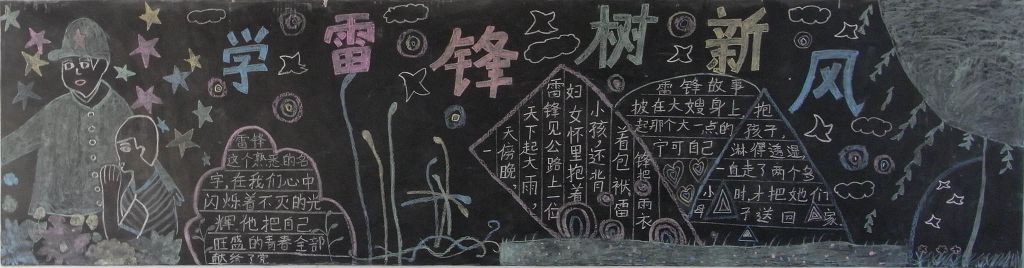 学雷锋树新风
雷锋
这个熟悉的名
字,在我们心中
闪烁着不灭的光
辉他把自己
旺盛的青春全部
献给了党
一天傍晚,
天下起大雨,
雷锋见公路上一位
妇女怀里抱着
小孩,还背
着包袱雷
锋把雨衣
雷锋故事
披在大嫂身上,抱
起那个大一点的孩子
宁可自己淋得透湿
一直走了两个多
小时才把她们
送回家